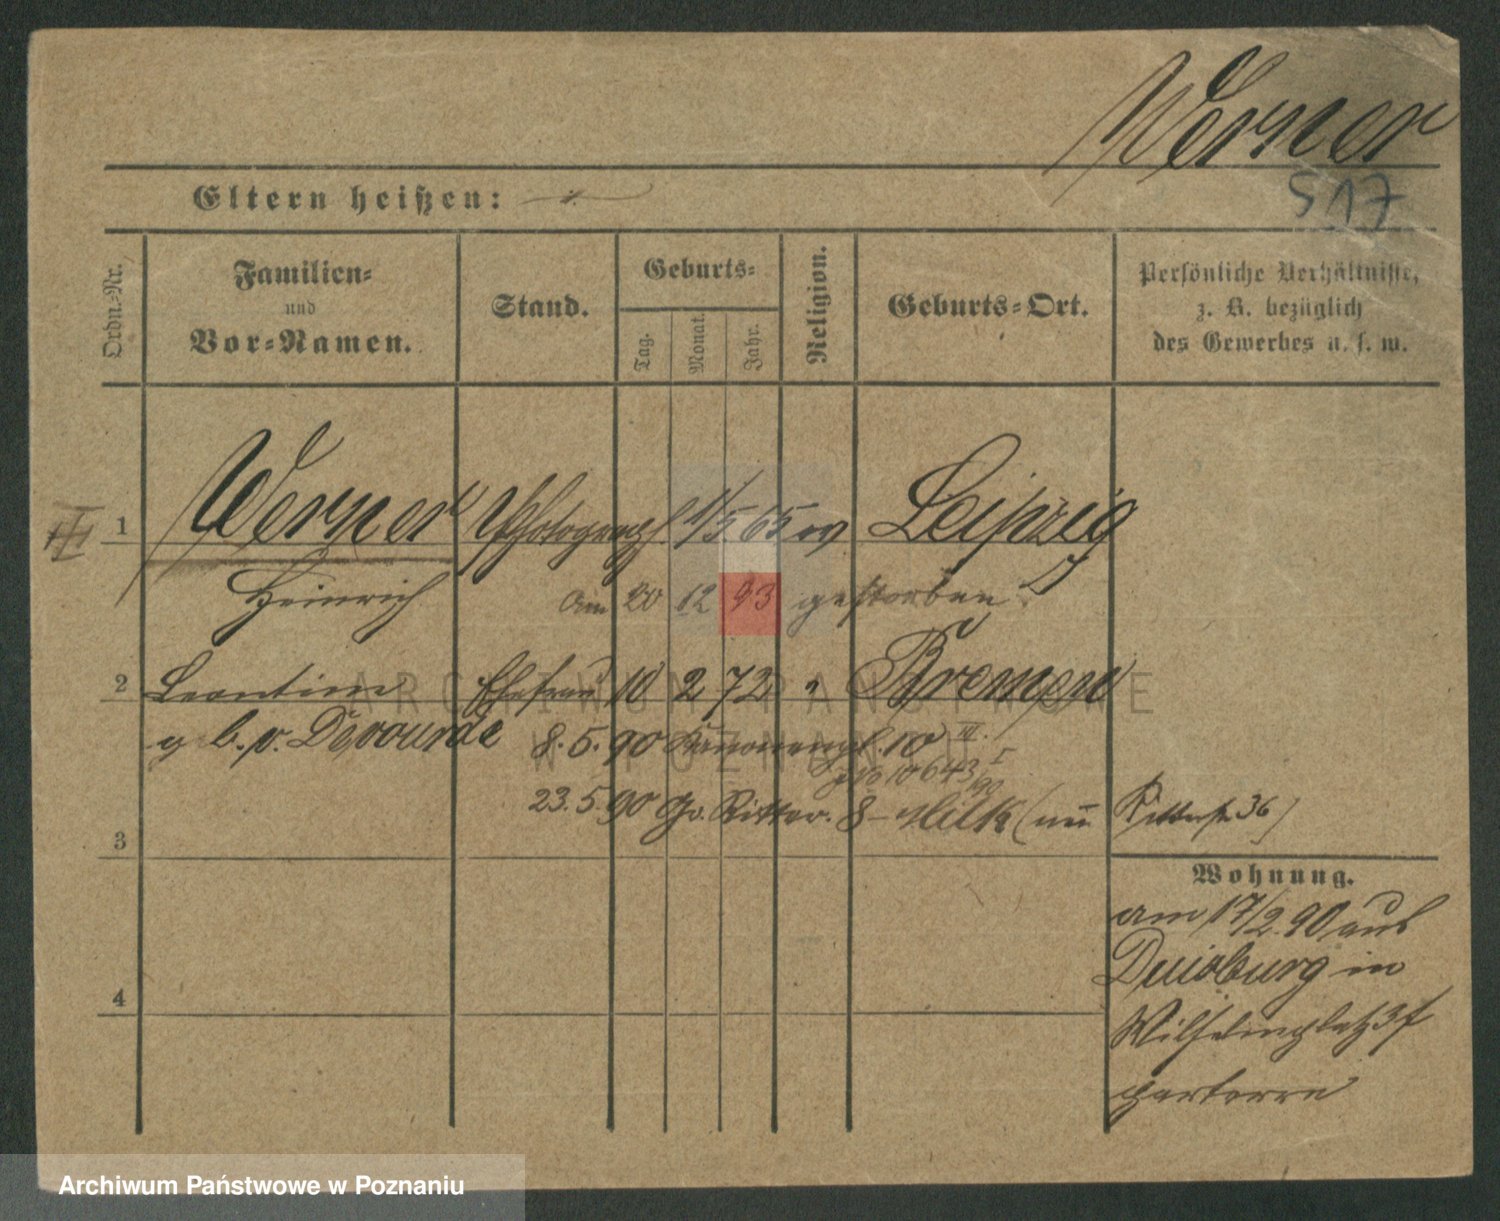 Werner
517
Eltern heißen:
Ordn.=Nr.
Familien=
und
Vor=Namen.
Stand.
Geburts=
Tag.
Monat.
Jahr.
Religion.
Geburts=Ort.
Persönliche Verhältnisse,
z. B. bezüglich
des Gewerbes u. s. w.
III
1 Werner Photograph 1/5 65 ev Leipzig
Heinrich am 20 12 93 gestorben
2 Leontine Ehefrau 10 2 72 " Bremen
geb. v. Devourde
8.5.90 Kanonenpl. 10 III.
10643 I/90
23.5.90 Gr. Ritter. 8 - Milk (nun Ritterstr 36)
3
4
Wohnung.
am 17/2.90 aus
Duisburg in
Wilhelmplatz 3
parterre
ARCHIWUM PAŃSTWOWE
W POZNANIU
Archiwum Państwowe w Poznaniu